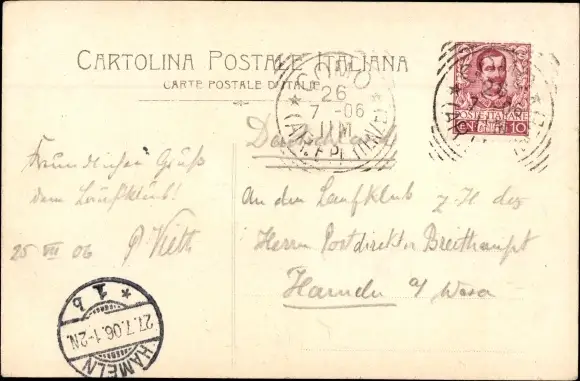 CARTOLINA POSTALE ITALIANA
CARTE POSTALE D'ITALIE
COMO
26
7 -06
1 M
POSTE ITALIANE
CENT. 10
Deutschland
Freundlichen Gruß
dem Laufklub!
25 VII 06 P. Vieth
An den Laufklub z. H. des
Herrn Postdirektor Breithaupt
Hameln a/ Weser
HAMELN
27.7.06.1-2N.
* 1 b